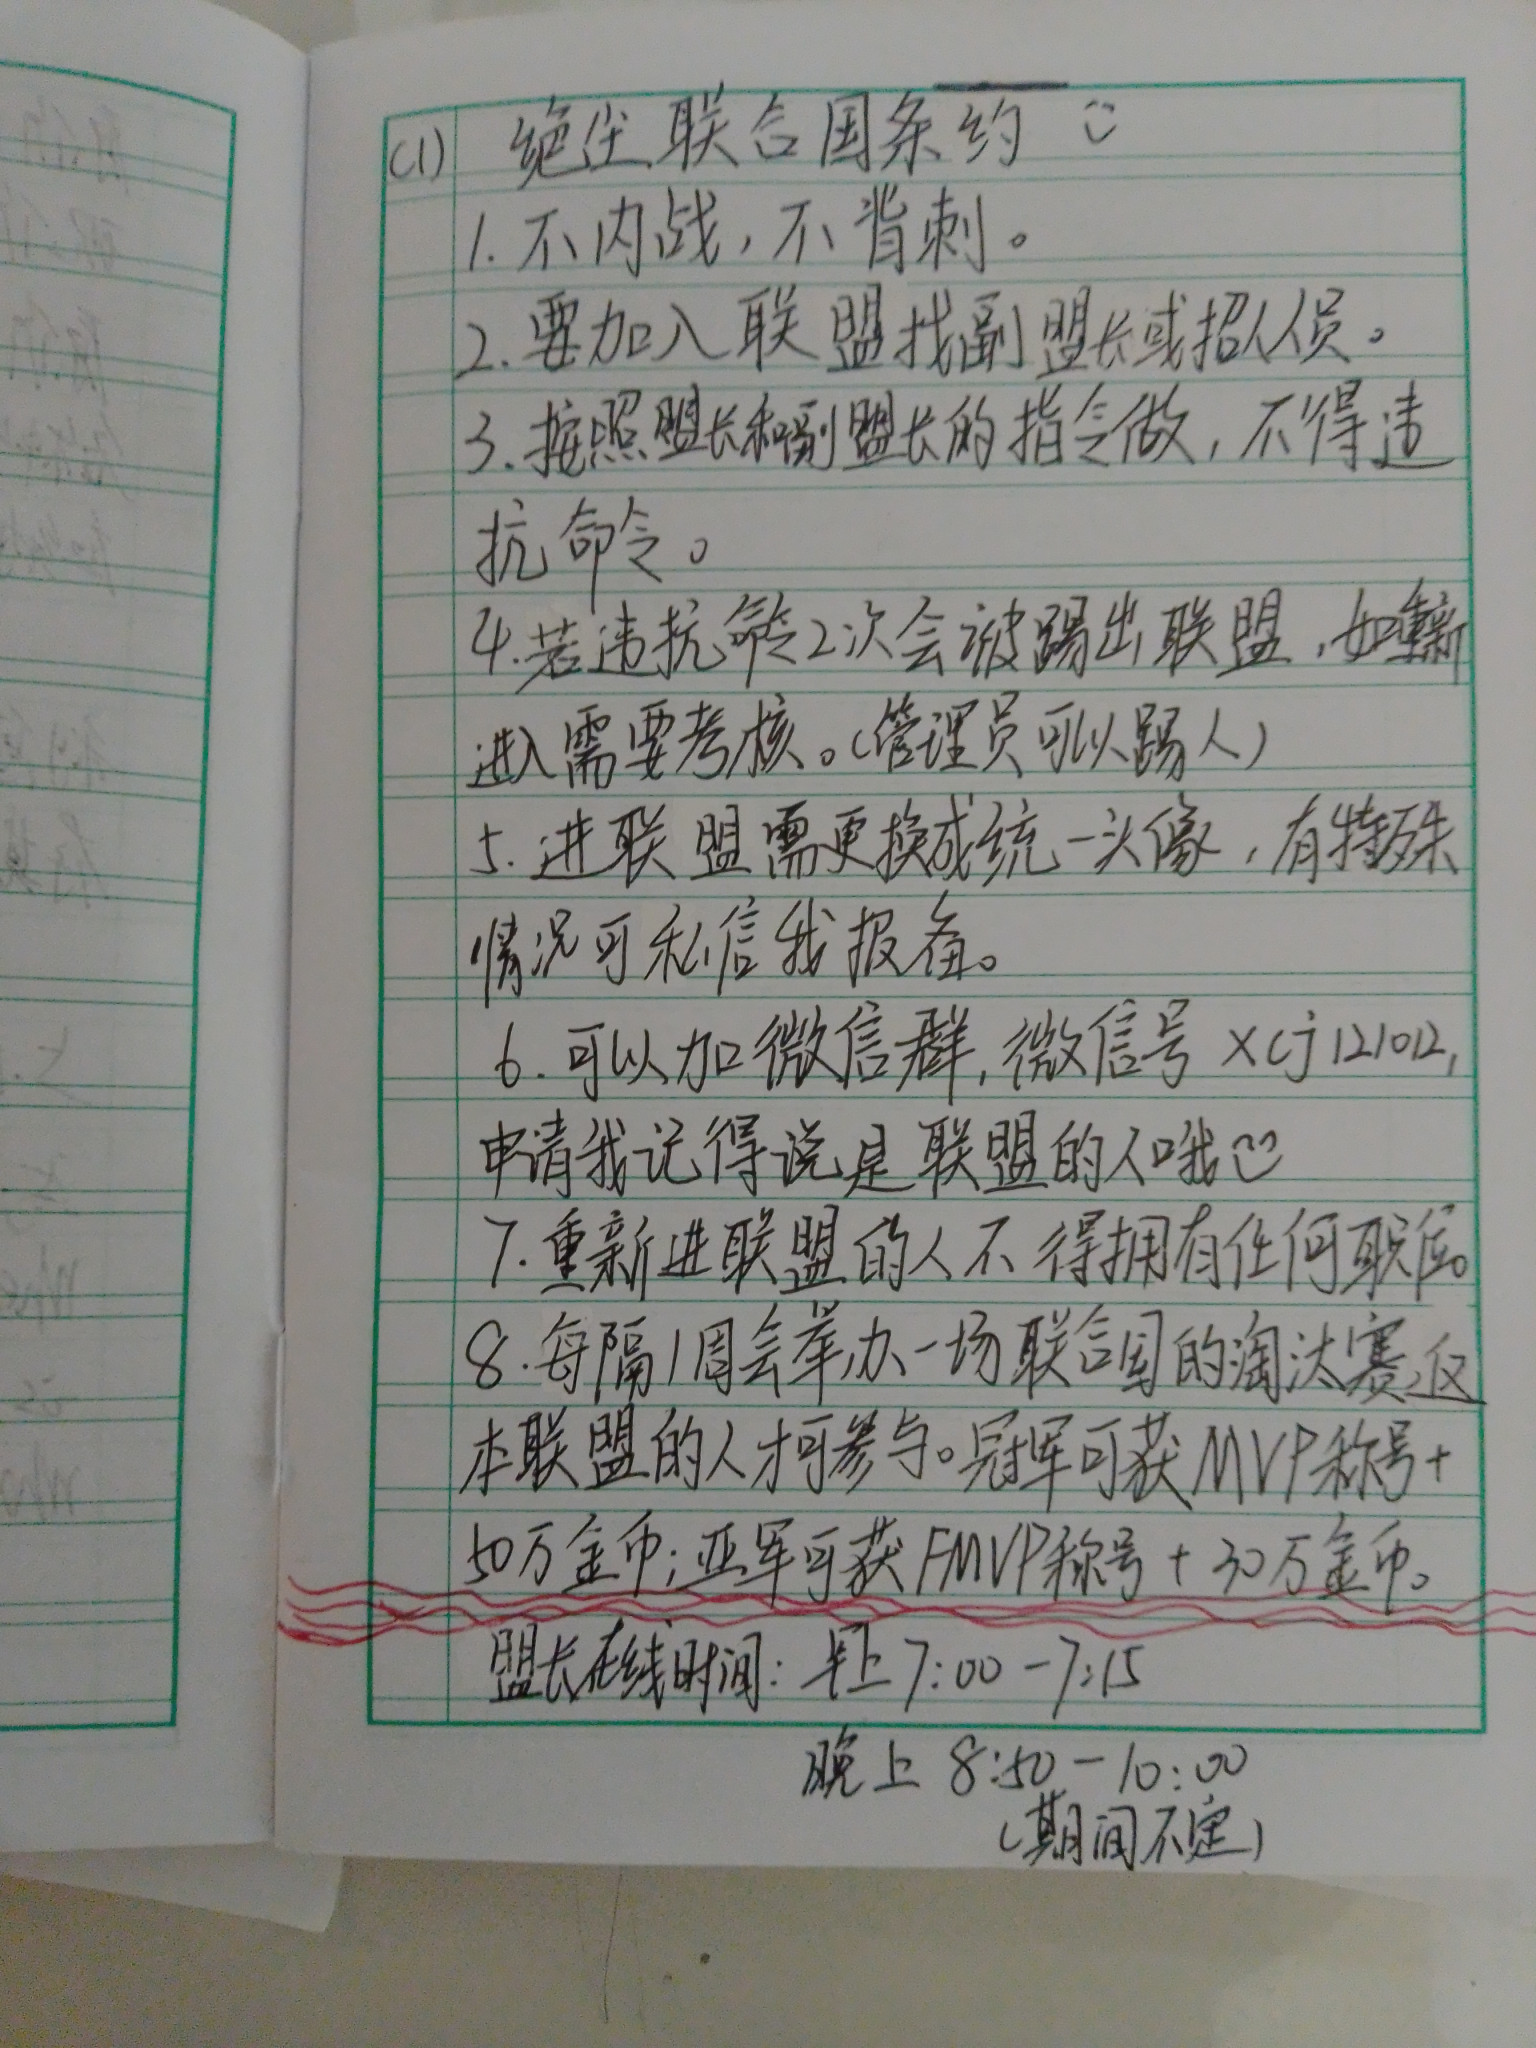 (1) 绝尘联合国条约
1. 不内战，不背刺。
2. 要加入联盟找副盟长或招人员。
3. 按照盟长和副盟长的指令做，不得违
抗命令。
4. 若违抗命令2次会被踢出联盟，如重新
进入需要考核。(管理员可以踢人)
5. 进联盟需更换成统一头像，有特殊
情况可私信我报备。
6. 可以加微信群，微信号xcj121012，
申请我记得说是联盟的人哦
7. 重新进联盟的人不得拥有任何职位。
8. 每隔1周会举办一场联合国的淘汰赛，仅
本联盟的人才可参与。冠军可获MVP称号+
50万金币；亚军可获FMVP称号+30万金币。
盟长在线时间：早上7:00-7:15
晚上8:50-10:00
(期间不定)